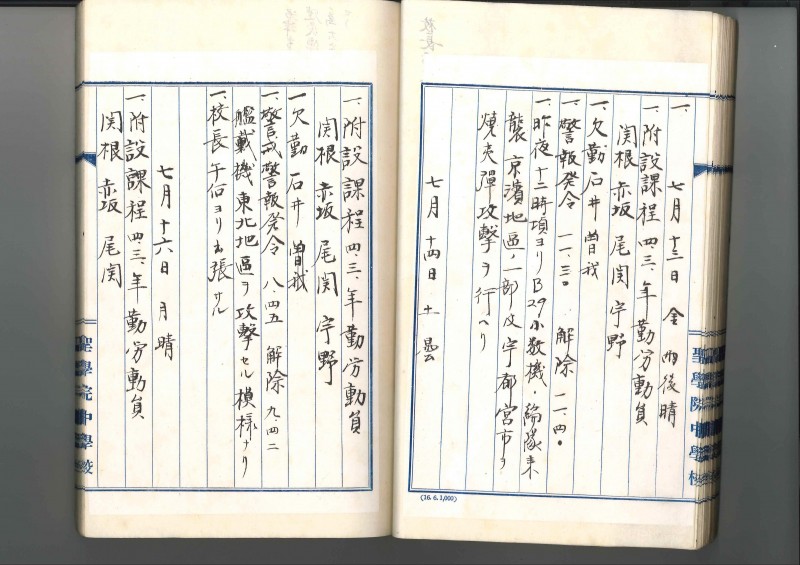 一、 七月 十三日 金 雨後晴
一、附設課程 四、三、年 勤労動員
関根 赤坂 尾関 宇野
一、欠勤 石井 曽我
一、警報発令 一一、三〇 解除 一一、四〇
一、昨夜十二時頃ヨリB29小数機・編隊来
襲 京濱地區ノ一部及宇都宮市ヲ
焼夷彈攻撃ヲ行ヘリ
七月 十四日 土 曇
(16. 6. 1,000)
聖學院中學校
一、附設課程 四、三、年 勤労動員
関根 赤坂 尾関 宇野
一、欠勤 石井 曽我
一、警戒警報発令 八、四五 解除 九、四二
艦載機東北地區ヲ攻撃セル模様ナリ
一、校長 午后ヨリ出張サル
七月 十六日 月 晴
一、附設課程 四、三、年 勤労動員
関根 赤坂 尾関
聖學院中學校